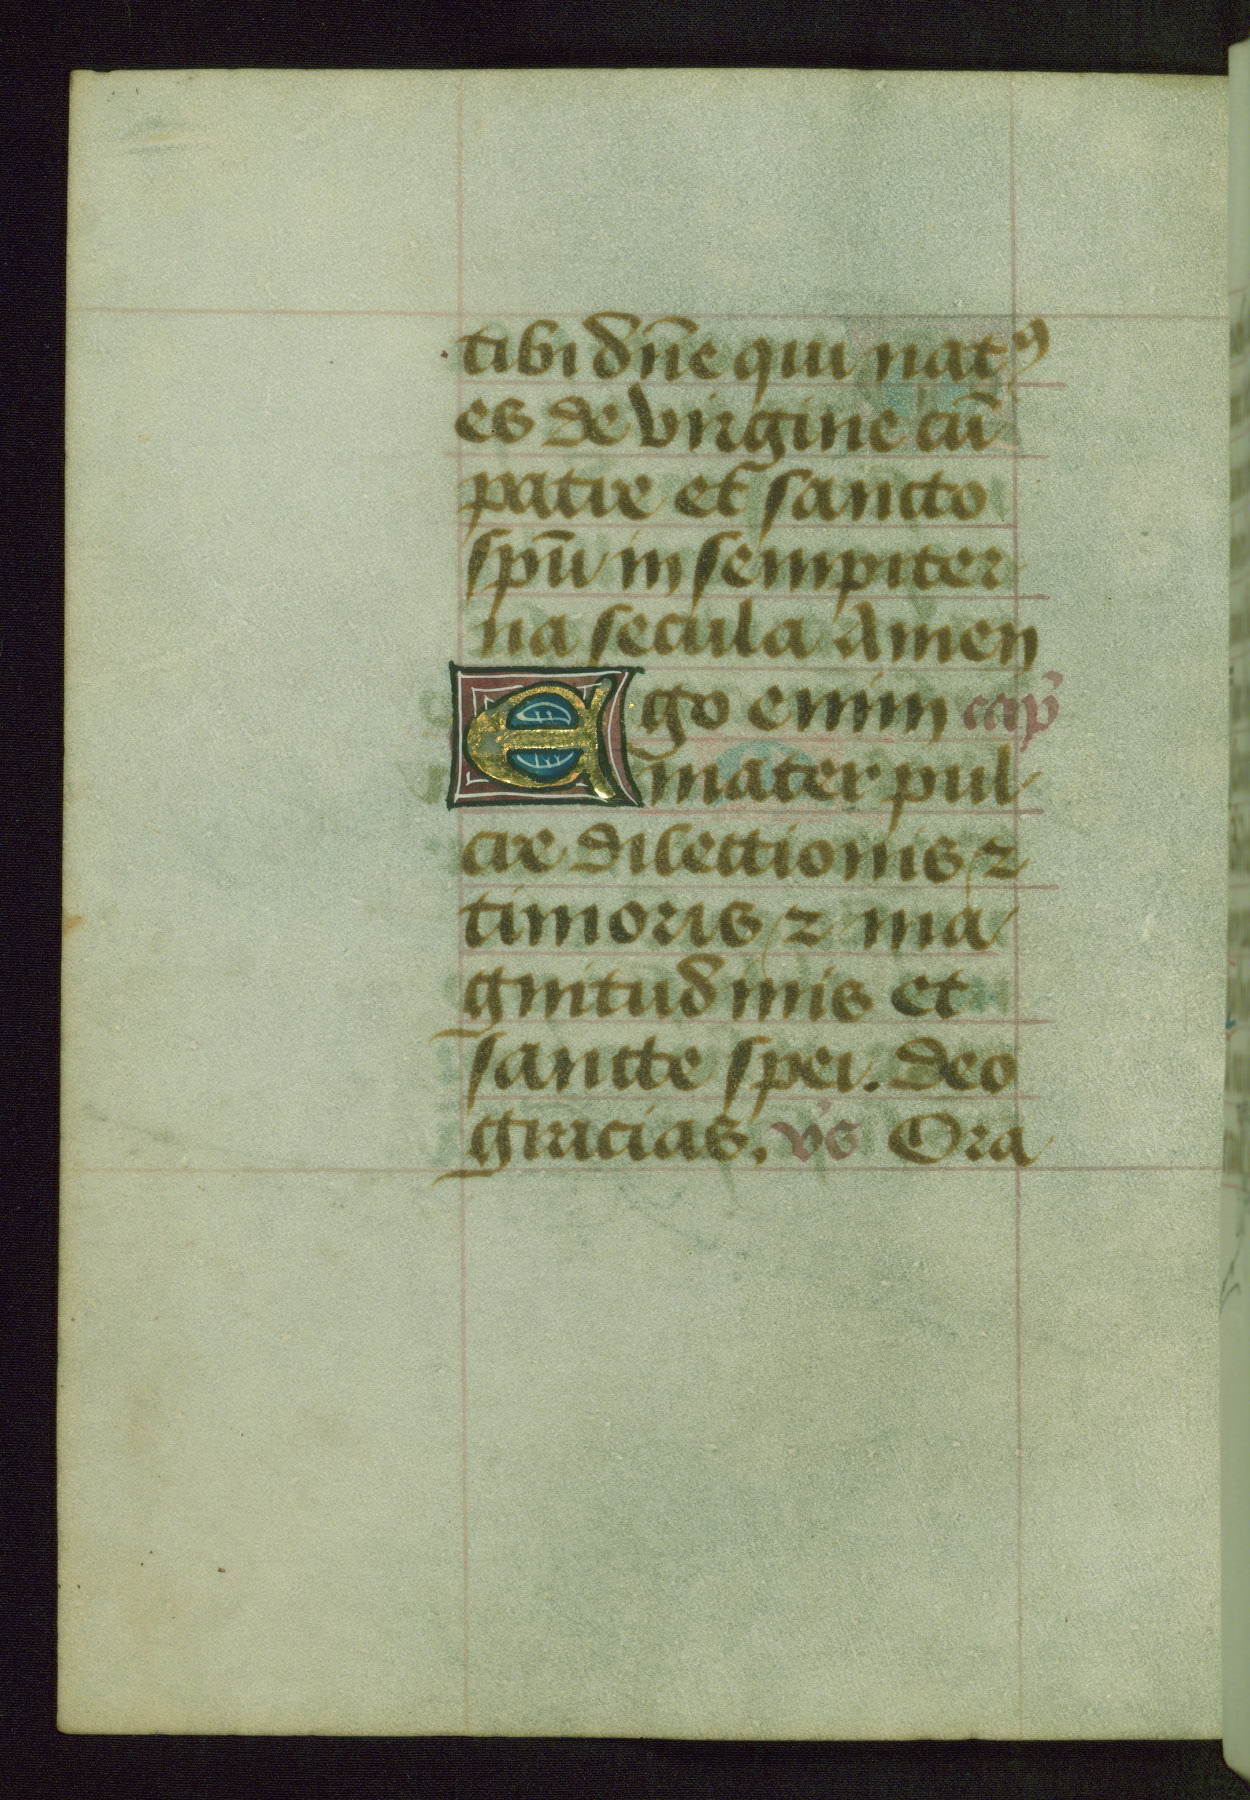 tibi dn̄e qui natꝰ
es de virgine cū
patre et sancto
spū in sempiter
na secula Amen
Ego enim cap̉
mater pul
cre dilectionis ⁊
timoris ⁊ ma
gnitudinis et
sancte spei. Deo
gracias. v̉s Ora